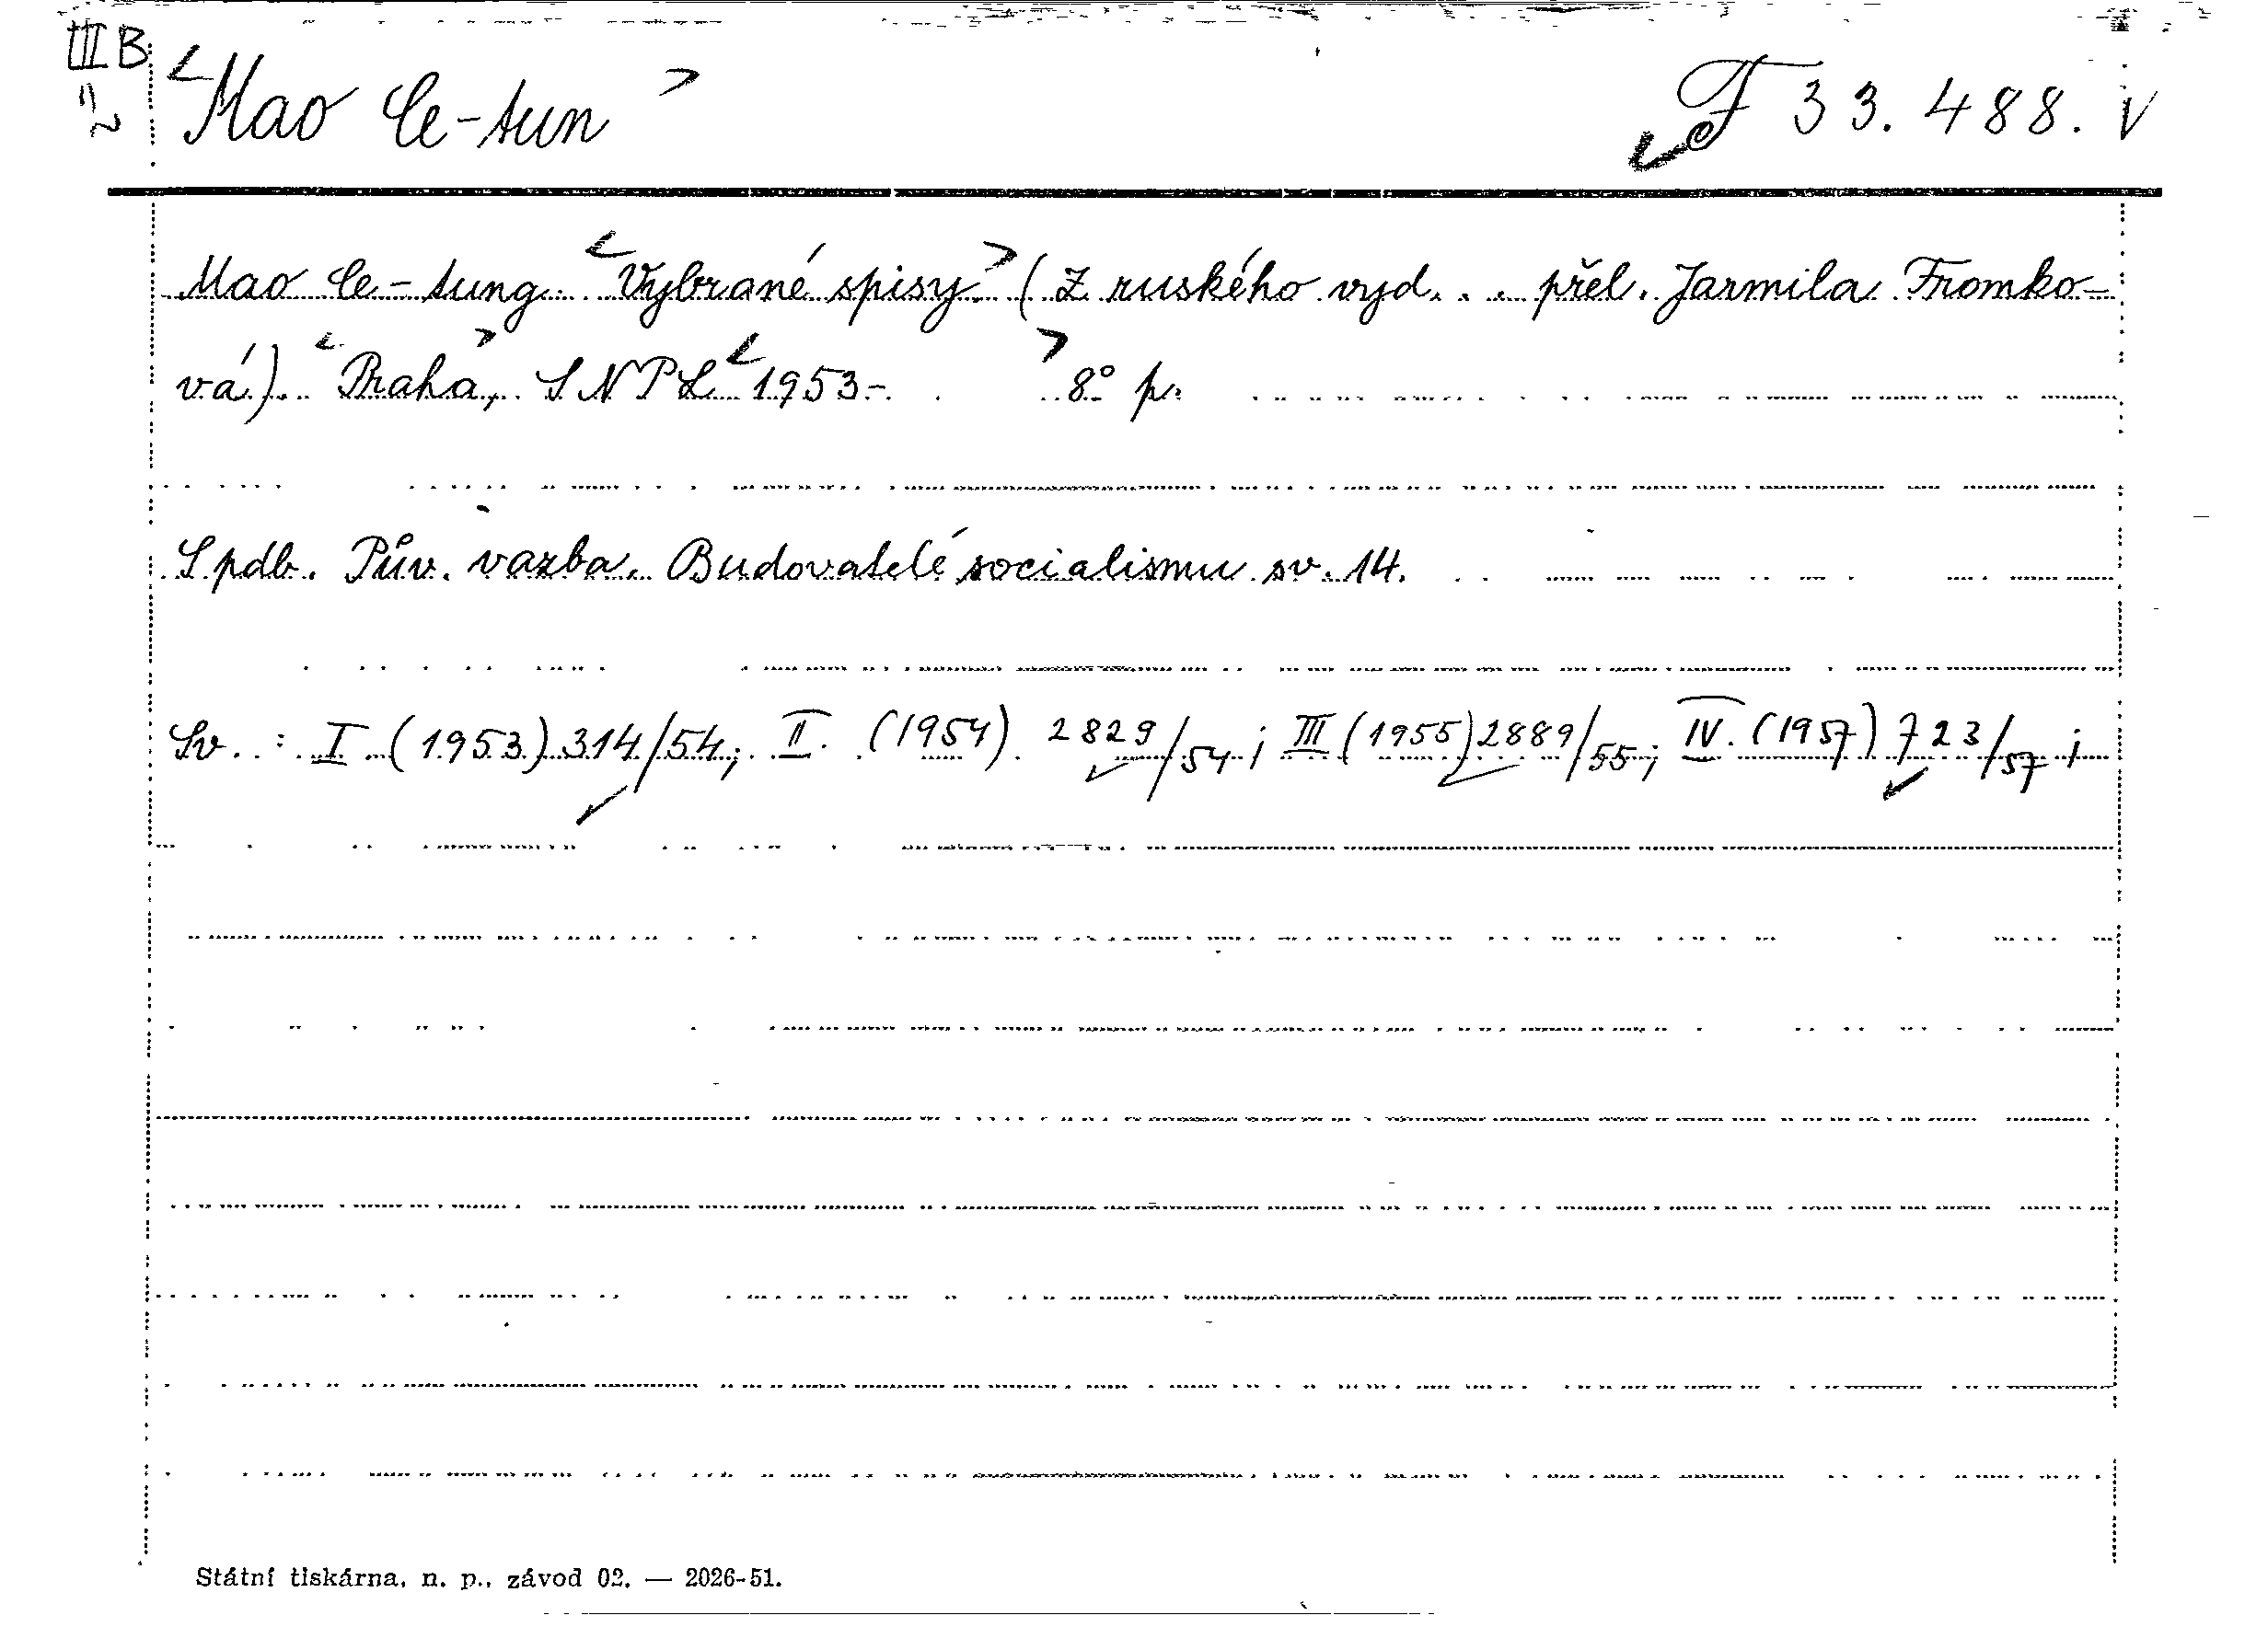 III B
"2
<Mao Ce-tun> F 33.488. V
Mao Ce-tung. <Vybrané spisy.> (Z ruského vyd. . . přel. Jarmila Fromko-
vá). <Praha>, SNPL <1953-. > 8° p.
S pdb. Pův. vazba. Budovatelé socialismu sv. 14.
Sv. : I (1953) 314/54; II. (1954) 2829/54; III (1955) 2889/55; IV. (1957) 723/57;
Státní tiskárna, n. p., závod 02. — 2026-51.